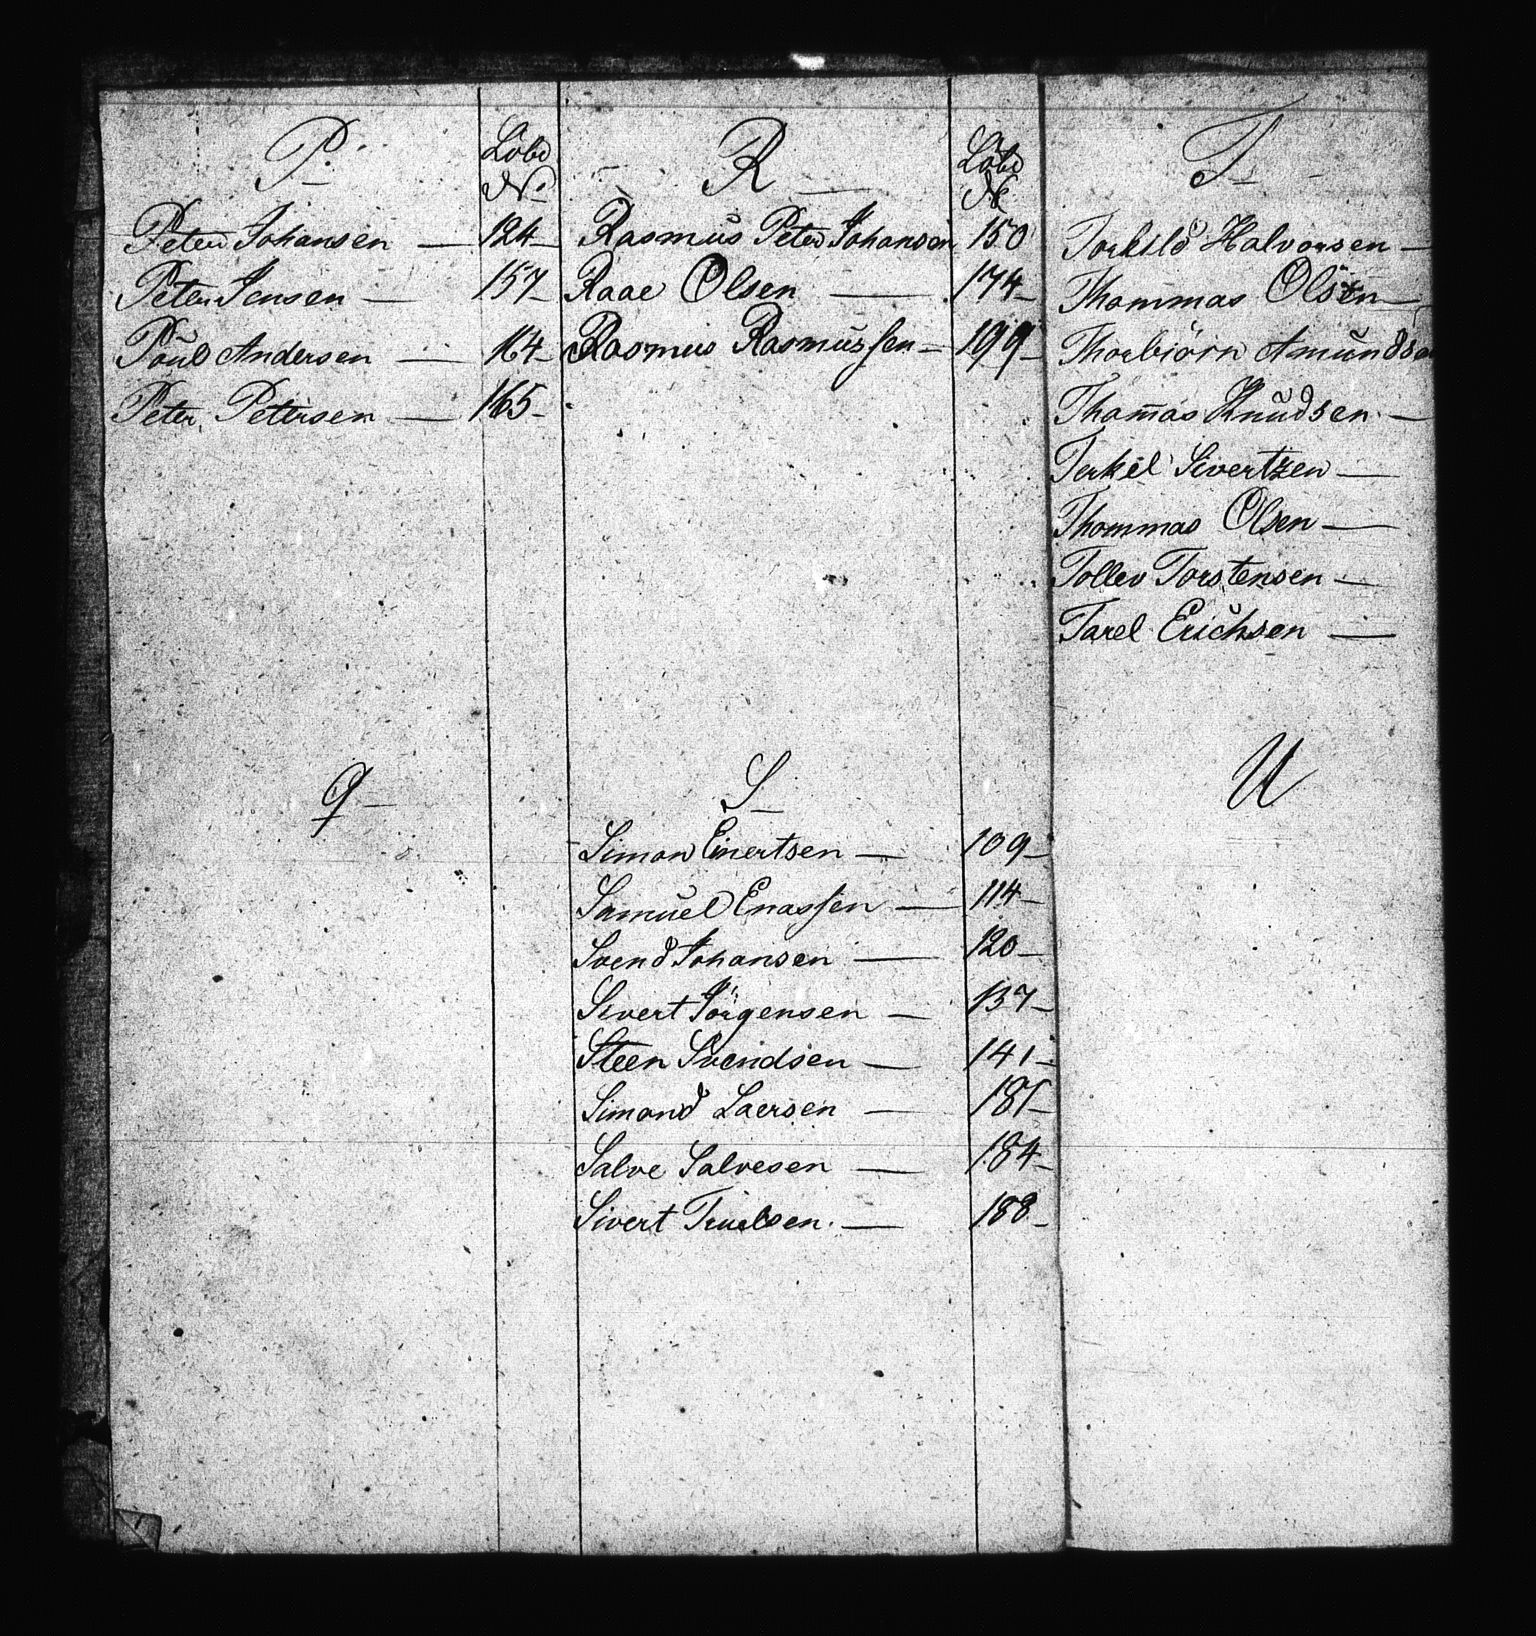 P.
Löbe
No
Peter Johansen — 124 —
Peter Jensen — 157 —
Poul Andersen — 164 —
Peter Petersen — 165 —
Q —
R —
Löbe
No
Rasmus Peter Johansen 150
Raae Olsen — 174 —
Rasmus Rasmussen — 199 —
S —
Simon Einertsen — 109 —
Samuel Enassen — 114 —
Svend Johansen — 120 —
Sivert Jörgensen — 137 —
Steen Svendsen — 141 —
Simond Laersen — 181 —
Salve Salvesen — 184 —
Sivert Truelsen. — 188 —
T —
Torkild Halvorsen —
Thommas Olsen —
Thorbiörn Amundsen
Thomas Knudsen —
Terkel Sivertzen —
Thommas Olsen —
Tollev Torstensen —
Tarel Erichsen —
U